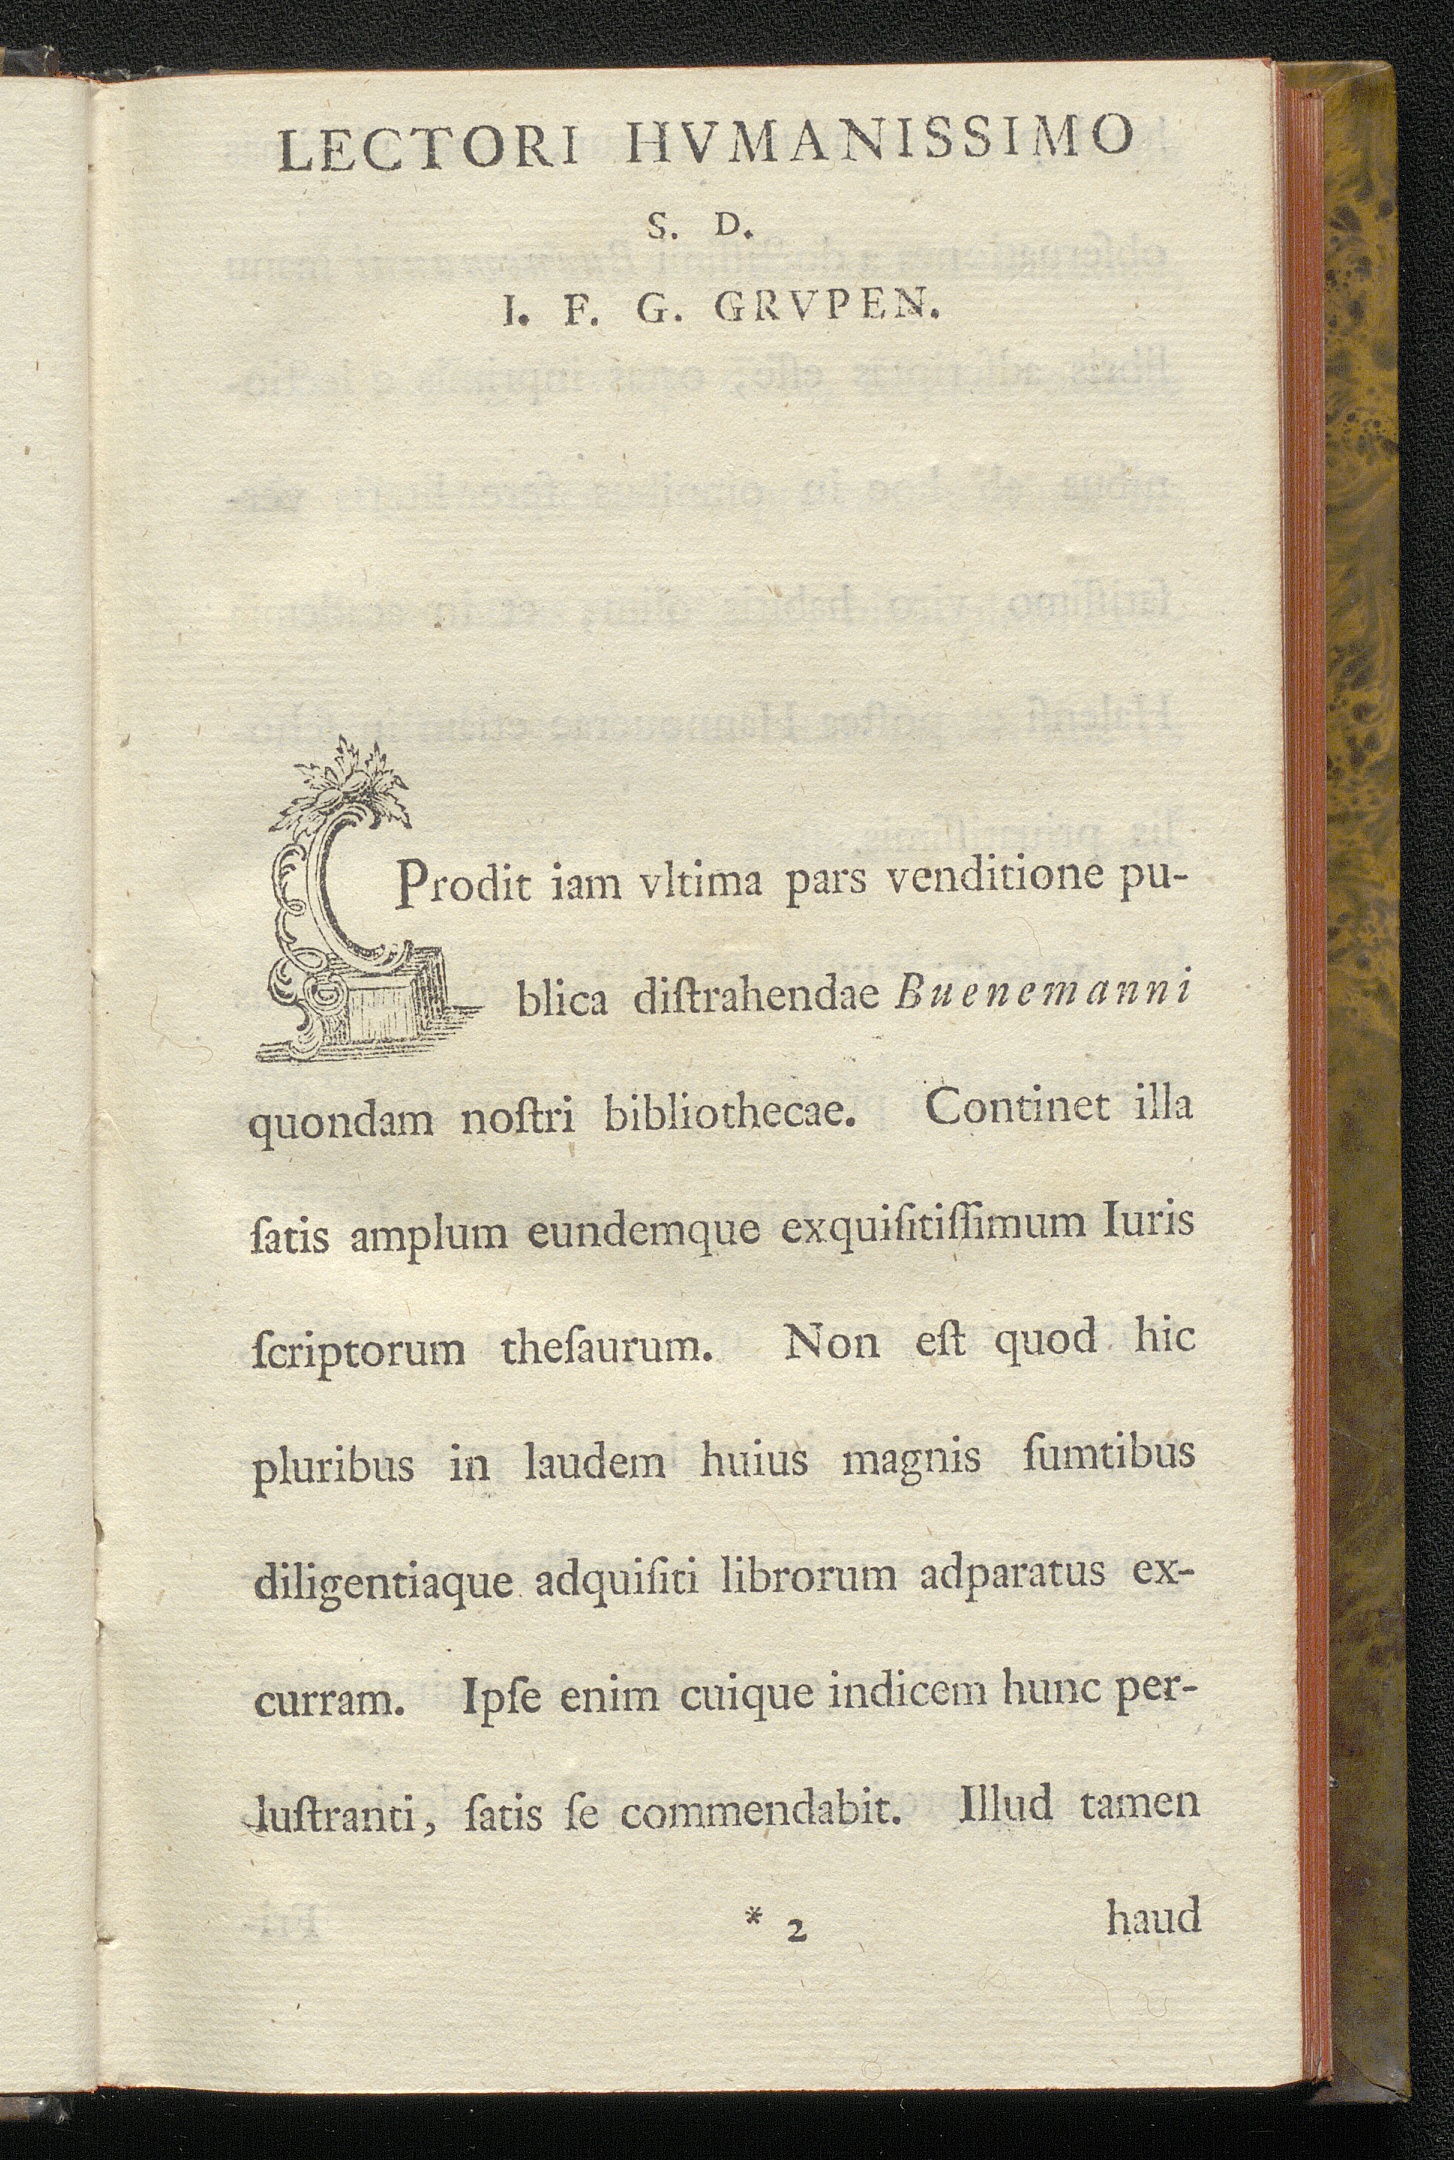 LECTORI HVMANISSIMO
S. D.
I. F. G. GRVPEN.
Prodit iam vltima pars venditione pu-
blica diſtrahendae Buenemanni
quondam noſtri bibliothecae. Continet illa
ſatis amplum eundemque exquiſitiſſimum Iuris
ſcriptorum theſaurum. Non eſt quod hic
pluribus in laudem huius magnis ſumtibus
diligentiaque adquiſiti librorum adparatus ex-
curram. Ipſe enim cuique indicem hunc per-
luſtranti, ſatis ſe commendabit. Illud tamen
* 2 haud